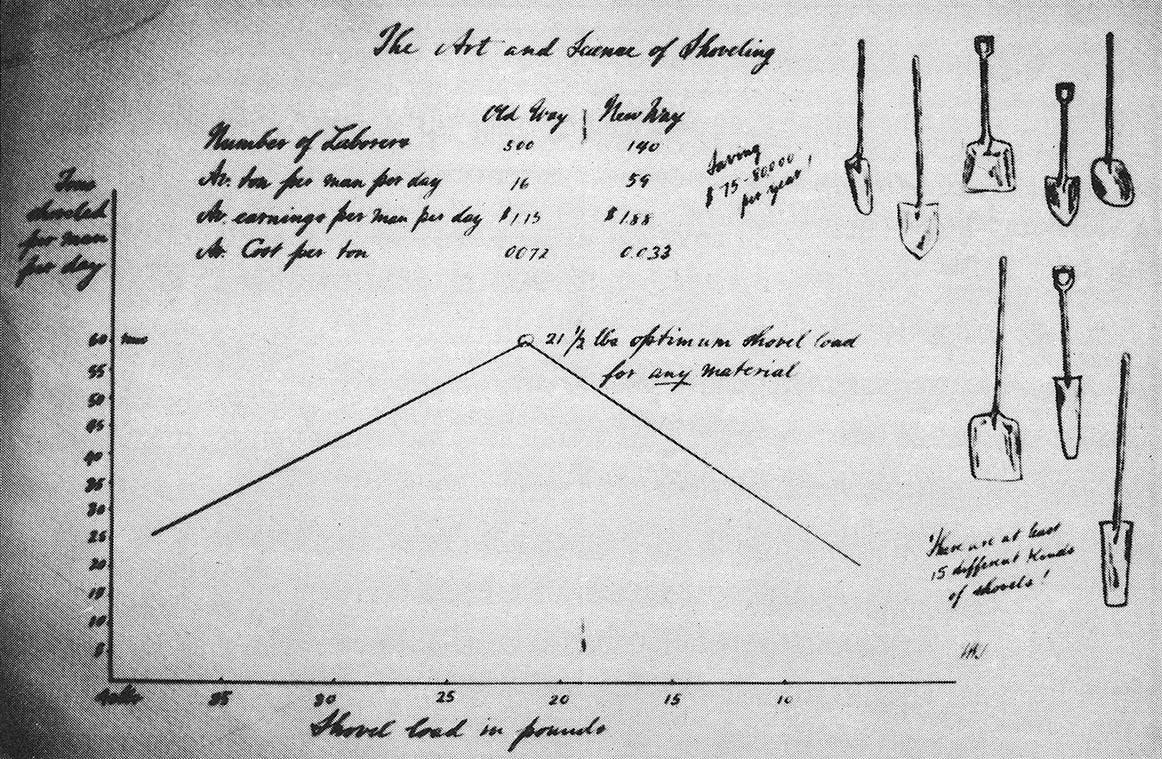 The Art and Science of Shoveling
Old Way | New Way
Number of Laborers 500 140
Av. ton per man per day 16 59
Av. earnings per man per day $1.15 $1.88
Av. Cost per ton 0072 0.033
Saving
$75-80,000
per year!
Tons
shoveled
per man
per day
60 tons
55
50
45
40
35
30
25
20
15
10
5
21 1/2 lbs optimum shovel load
for any material
There are at least
15 different Kinds
of shovels!
40 lbs 35 30 25 20 15 10
Shovel load in pounds